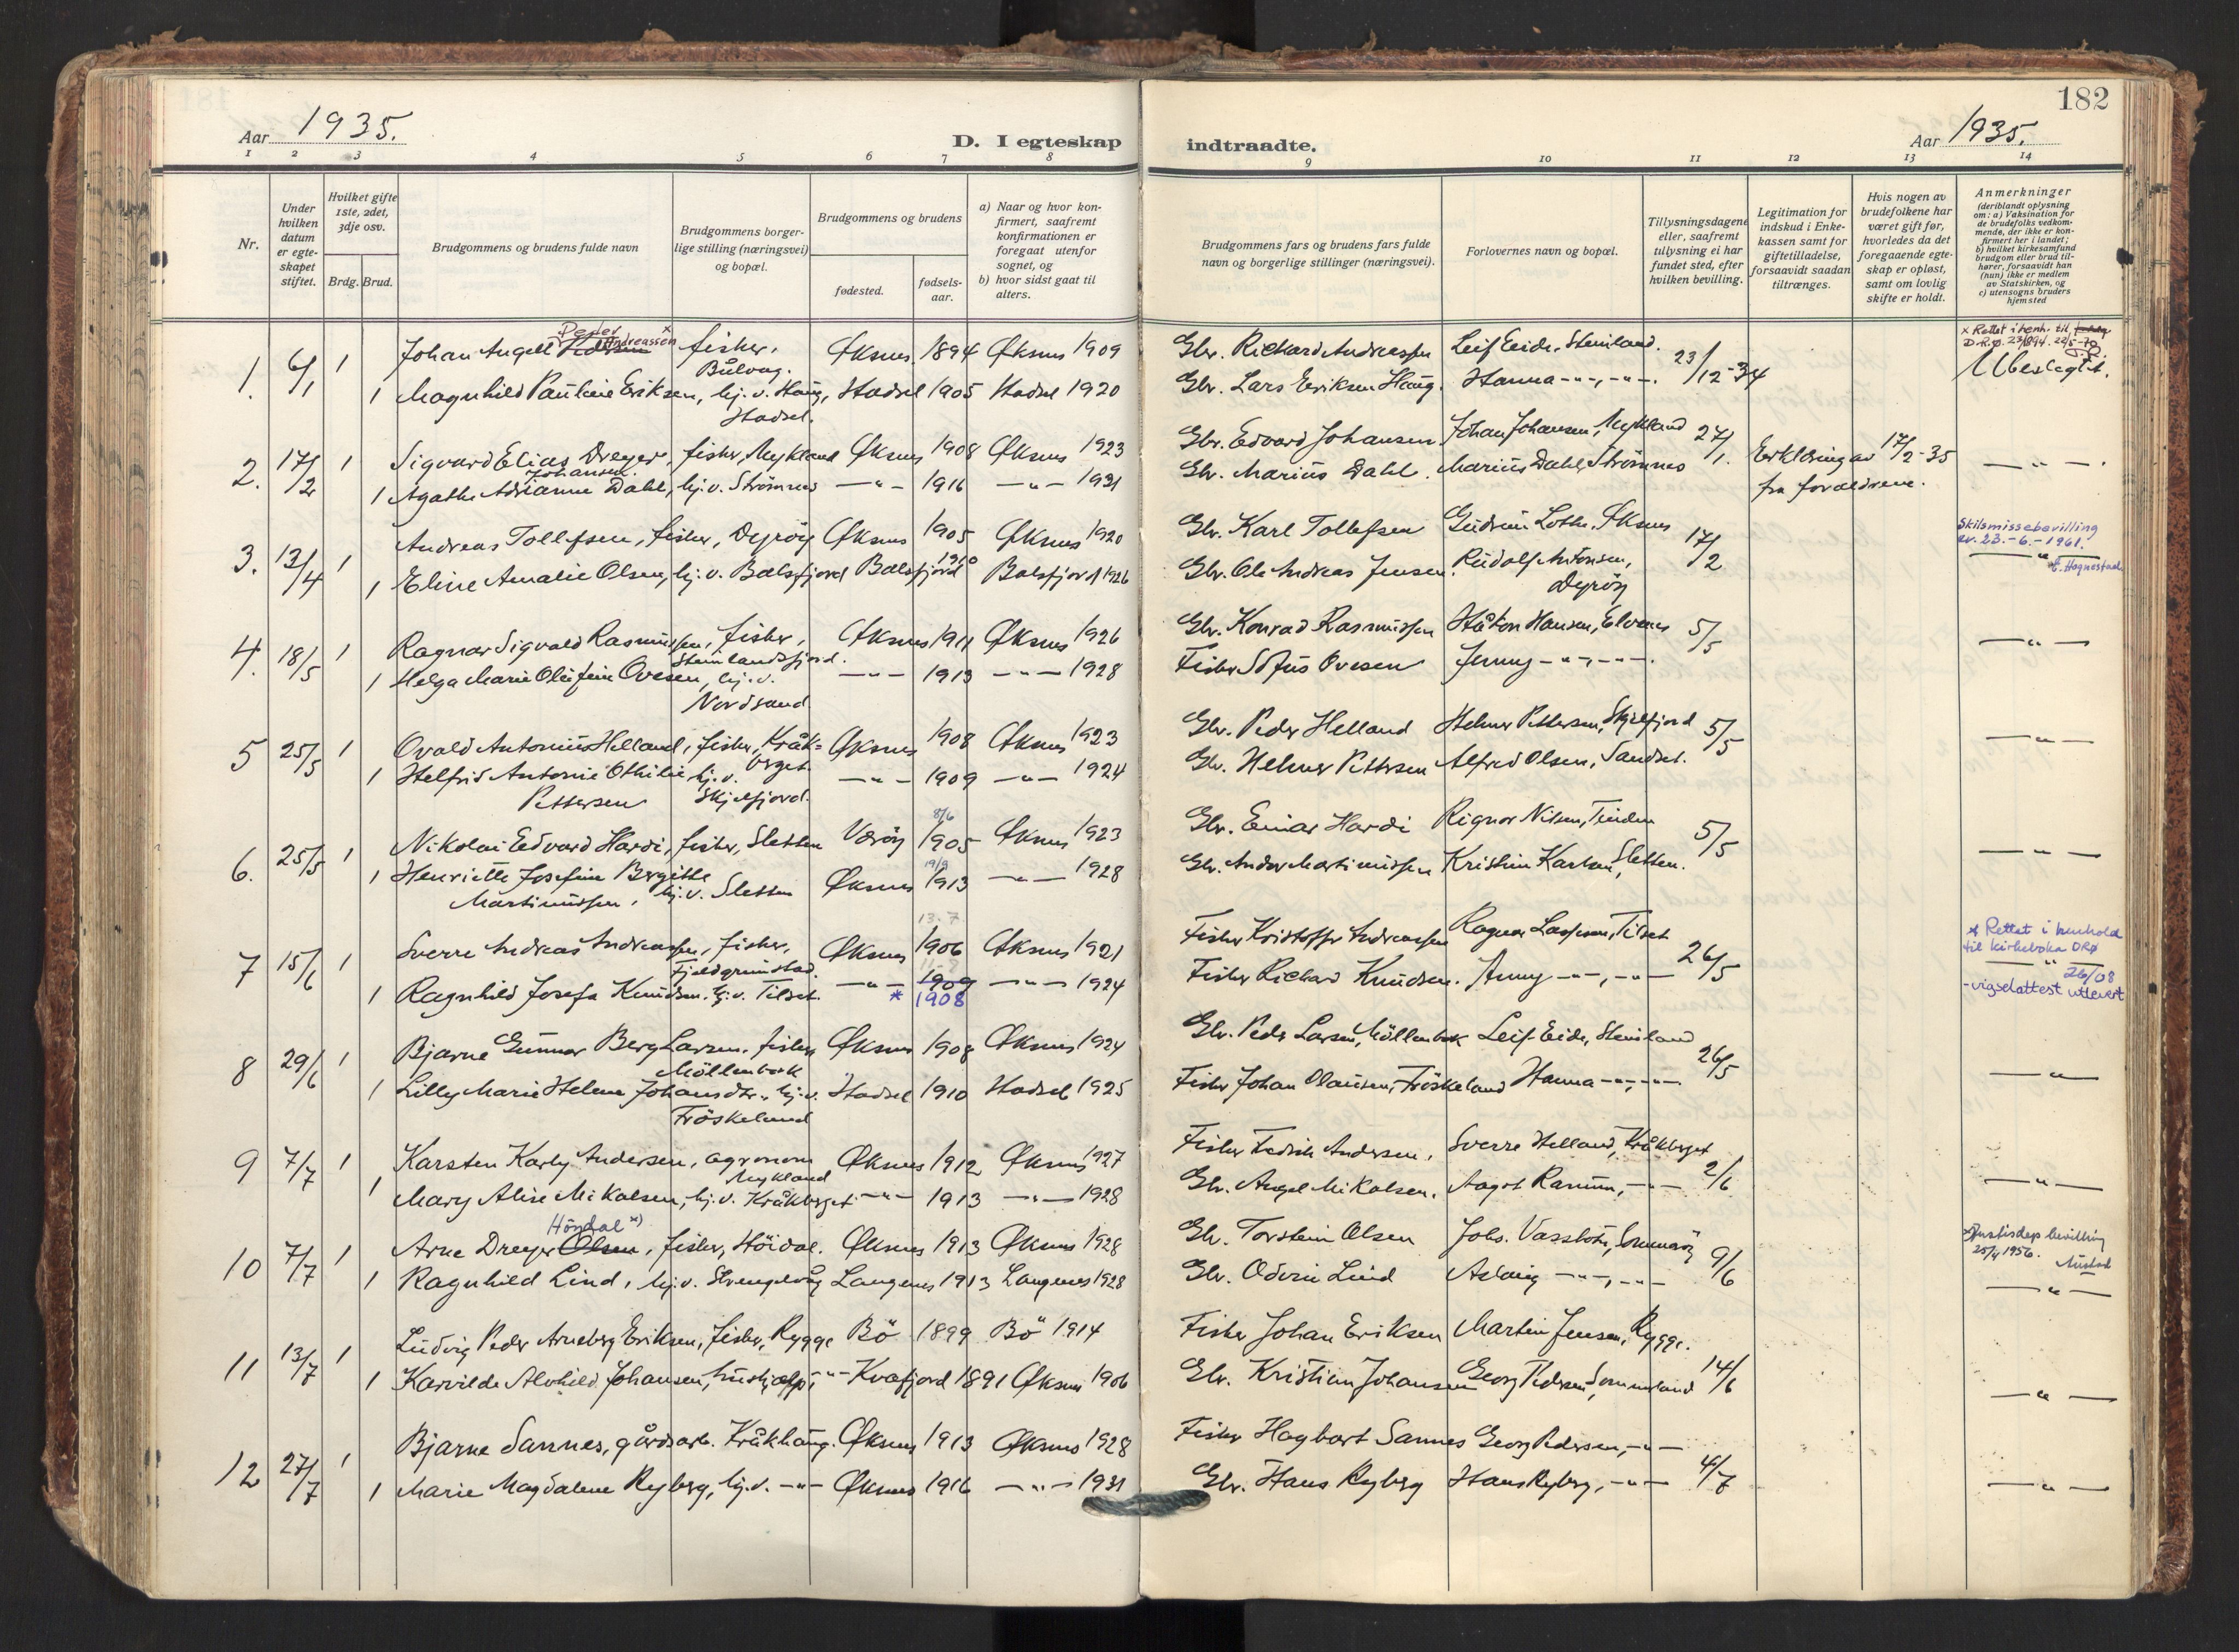 182
Aar 1935.
D. I egteskap
indtraadte.
Aar 1935.
1 2 3 4 5 6 7 8 9 10 11 12 13 14
Nr.
Under hvilken datum er egte-skapet stiftet.
Hvilket gifte 1ste, 2det, 3dje osv.
Brdg. Brud.
Brudgommens og brudens fulde navn
Brudgommens borger-lige stilling (næringsvei) og bopæl.
Brudgommens og brudens
fødested.
fødsels-aar.
a) Naar og hvor kon-firmert, saafremt konfirmationen er foregaat utenfor sognet, og
b) hvor sidst gaat til alters.
Brudgommens fars og brudens fars fulde navn og borgerlige stillinger (næringsvei).
Forlovernes navn og bopæl.
Tillysningsdagene eller, saafremt tillysning ei har fundet sted, efter hvilken bevilling.
Legitimation for indskud i Enke-kassen samt for giftetilladelse, forsaavidt saadan tiltrænges.
Hvis nogen av brudefolkene har været gift før, hvorledes da det foregaaende egte-skap er opløst, samt om lovlig skifte er holdt.
Anmerkninger (deriblandt oplysning om: a) Vaksination for de brudefolks vedkom-mende, der ikke er kon-firmert her i landet; b) hvilket kirkesamfund brudgom eller brud til-hører, forsaavidt han (hun) ikke er medlem av Statskirken, og c) utensogns bruders hjemsted
1. 6/1 1 Johan Angell Peder Andreassen x fisker, Bålvåg. Øksnes 1894 Øksnes 1909 Gbr. Rickard Andreassen Leif Eide, Steinland. 23/12-34 x Rettet i henh. til D.R.Ø. 23/1894. 22/5-70
1 Magnhild Pauline Eriksen, hj.v. Haug, Hadsel. Hadsel 1905 Hadsel 1920 Gbr. Lars Eriksen Haug. Hanna -"-, -"-. Ubeslegtet.
2. 17/2 1 Sigvard Elias Dreyer Johansen, fisker, Nykland Øksnes 1908 Øksnes 1923 Gbr. Edvard Johansen. Johan Johansen, Nykland 27/1. Erklæring av 17/2-35
1 Agathe Adrianne Dahl, hj.v. Strømnes -"- 1916 -"- 1931 Gbr. Marius Dahl. Marius Dahl, Strømnes fra foreldrene. -"-.
3. 13/4 1 Andreas Tollefsen, fisker, Dyrøy Øksnes 1905 Øksnes 1920 Gbr. Karl Tollefsen Gudrun Lothe, Øksnes 17/2 Skilsmissebevilling av. 23.-6.-1961.
1 Eline Amalie Olsen, hj.v. Balsfjord Balsfjord 1910 Balsfjord 1926 Gbr. Ole Andreas Jensen. Rudolf Antonsen, Dyrøy -"- E. Hognestad
4. 18/5 1 Ragnar Sigvald Rasmussen, fisker, Steinlandsfjord. Øksnes 1911 Øksnes 1926 Gbr. Konrad Rasmussen Håkon Hansen, Elvenes 5/5
1 Helga Marie Olufine Ovesen, hj.v. Nordsand. -"- 1913 -"- 1928 Fisker Sofus Ovesen Jenny -"-, -"-. -"-
5 25/5 1 Ovald Antonius Helland, fisker, Kråkberget. Øksnes 1908 Øksnes 1923 Gbr. Peder Helland Helmer Pettersen, Skjelfjord 5/5
1 Helfrid Antonie Othilie Pettersen hj.v. Skjelfjord. -"- 1909 -"- 1924 Gbr. Helmer Pettersen Alfred Olsen, Sandset. -"-
6. 25/5 1 Nikolai Edvard Hardi, fisker, Sletten Værøy 8/6 1905 Øksnes 1923 Gbr. Einar Hardi Rignor Nilsen, Tinden 5/5
1 Henriette Josefine Bergitte Martinussen, hj.v. Sletten Øksnes 19/9 1913 -"- 1928 Gbr. Ander Martinussen Kristine Karlsen, Sletten. -"-
7 15/6 1 Sverre Andreas Andreassen, fisker, Fjeldgrunstad. Øksnes 13.7 1906 Øksnes 1921 Fisker Kristoffer Andreassen Ragnar Lassesen, Tilset 26/5 * Rettet i henhold til kirkeboka DRØ 26/08
1 Ragnhild Josefa Knudsen. hj.v. Tilset. -"- 1909 * 1908 -"- 1924 Fisker Richard Knudsen. Anny -"-, -"- -"- -vigselattest utlevert
8 29/6 1 Bjarne Gunnar Berg Larsen. fisker Møllenbrk Øksnes 1908 Øksnes 1924 Gbr. Peder Larsen, Møllenbrk Leif Eide, Steinland 26/5
1 Lilly Marie Helene Johansdtr., hj.v. Frøskeland Hadsel 1910 Hadsel 1925 Fisker Johan Olausen, Frøskeland Hanna -"-, -"-. -"-
9 7/7 1 Karsten Karly Andersen, agronom Nykland Øksnes 1912 Øksnes 1927 Fisker Fedrik Andersen. Sverre Helland, Kråkberget 2/6
1 Mary Alise Mikalsen, hj.v. Kråkberget -"- 1913 -"- 1928 Gbr. Angel Mikalsen. Aagot Ramm, -"- -"-
10 7/7 1 Arne Dreyer Olsen Høydal x), fisker, Høidal. Øksnes 1913 Øksnes 1928 Gbr. Torstein Olsen Johs. Vassbotn, Sommarøy 9/6 x) Justisdep bevilling 25/4 1956. Austad
1 Ragnhild Lind, hj.v. Strengelvåg Langenes 1913 Langenes 1928 Gbr. Odin Lind Aslaug -"-, -"- -"-
11 13/7 1 Ludvig Peder Arneberg Eriksen, fisker, Rygge Bö 1899 Bö 1914 Fisker Johan Eriksen Martin Jensen, Rygge.
1 Karvilde Alvhild Johansen, hushjælp, -"- Kvæfjord 1891 Øksnes 1906 Gbr. Kristian Johansen Georg Pedersen, Sommerland 14/6 -"-
12 27/7 1 Bjarne Sannes, gårdsarb. Kråkhaug. Øksnes 1913 Øksnes 1928 Fisker Hagbart Sannes Georg Pedersen, -"-
1 Marie Magdalene Ryberg, hj.v. -"- Øksnes 1916 -"- 1931 Gbr. Hans Ryberg Hans Ryberg, -"- 4/7 -"-